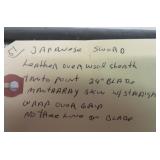 5) JAPANESE SWORD
LEATHER OVER WOOD SHEATH
TANTO POINT 24" BLADE
MANTARRAY SKIN W/STRAIGH
WRAP OVER GRIP
NO TEMP LINE ON BLADE